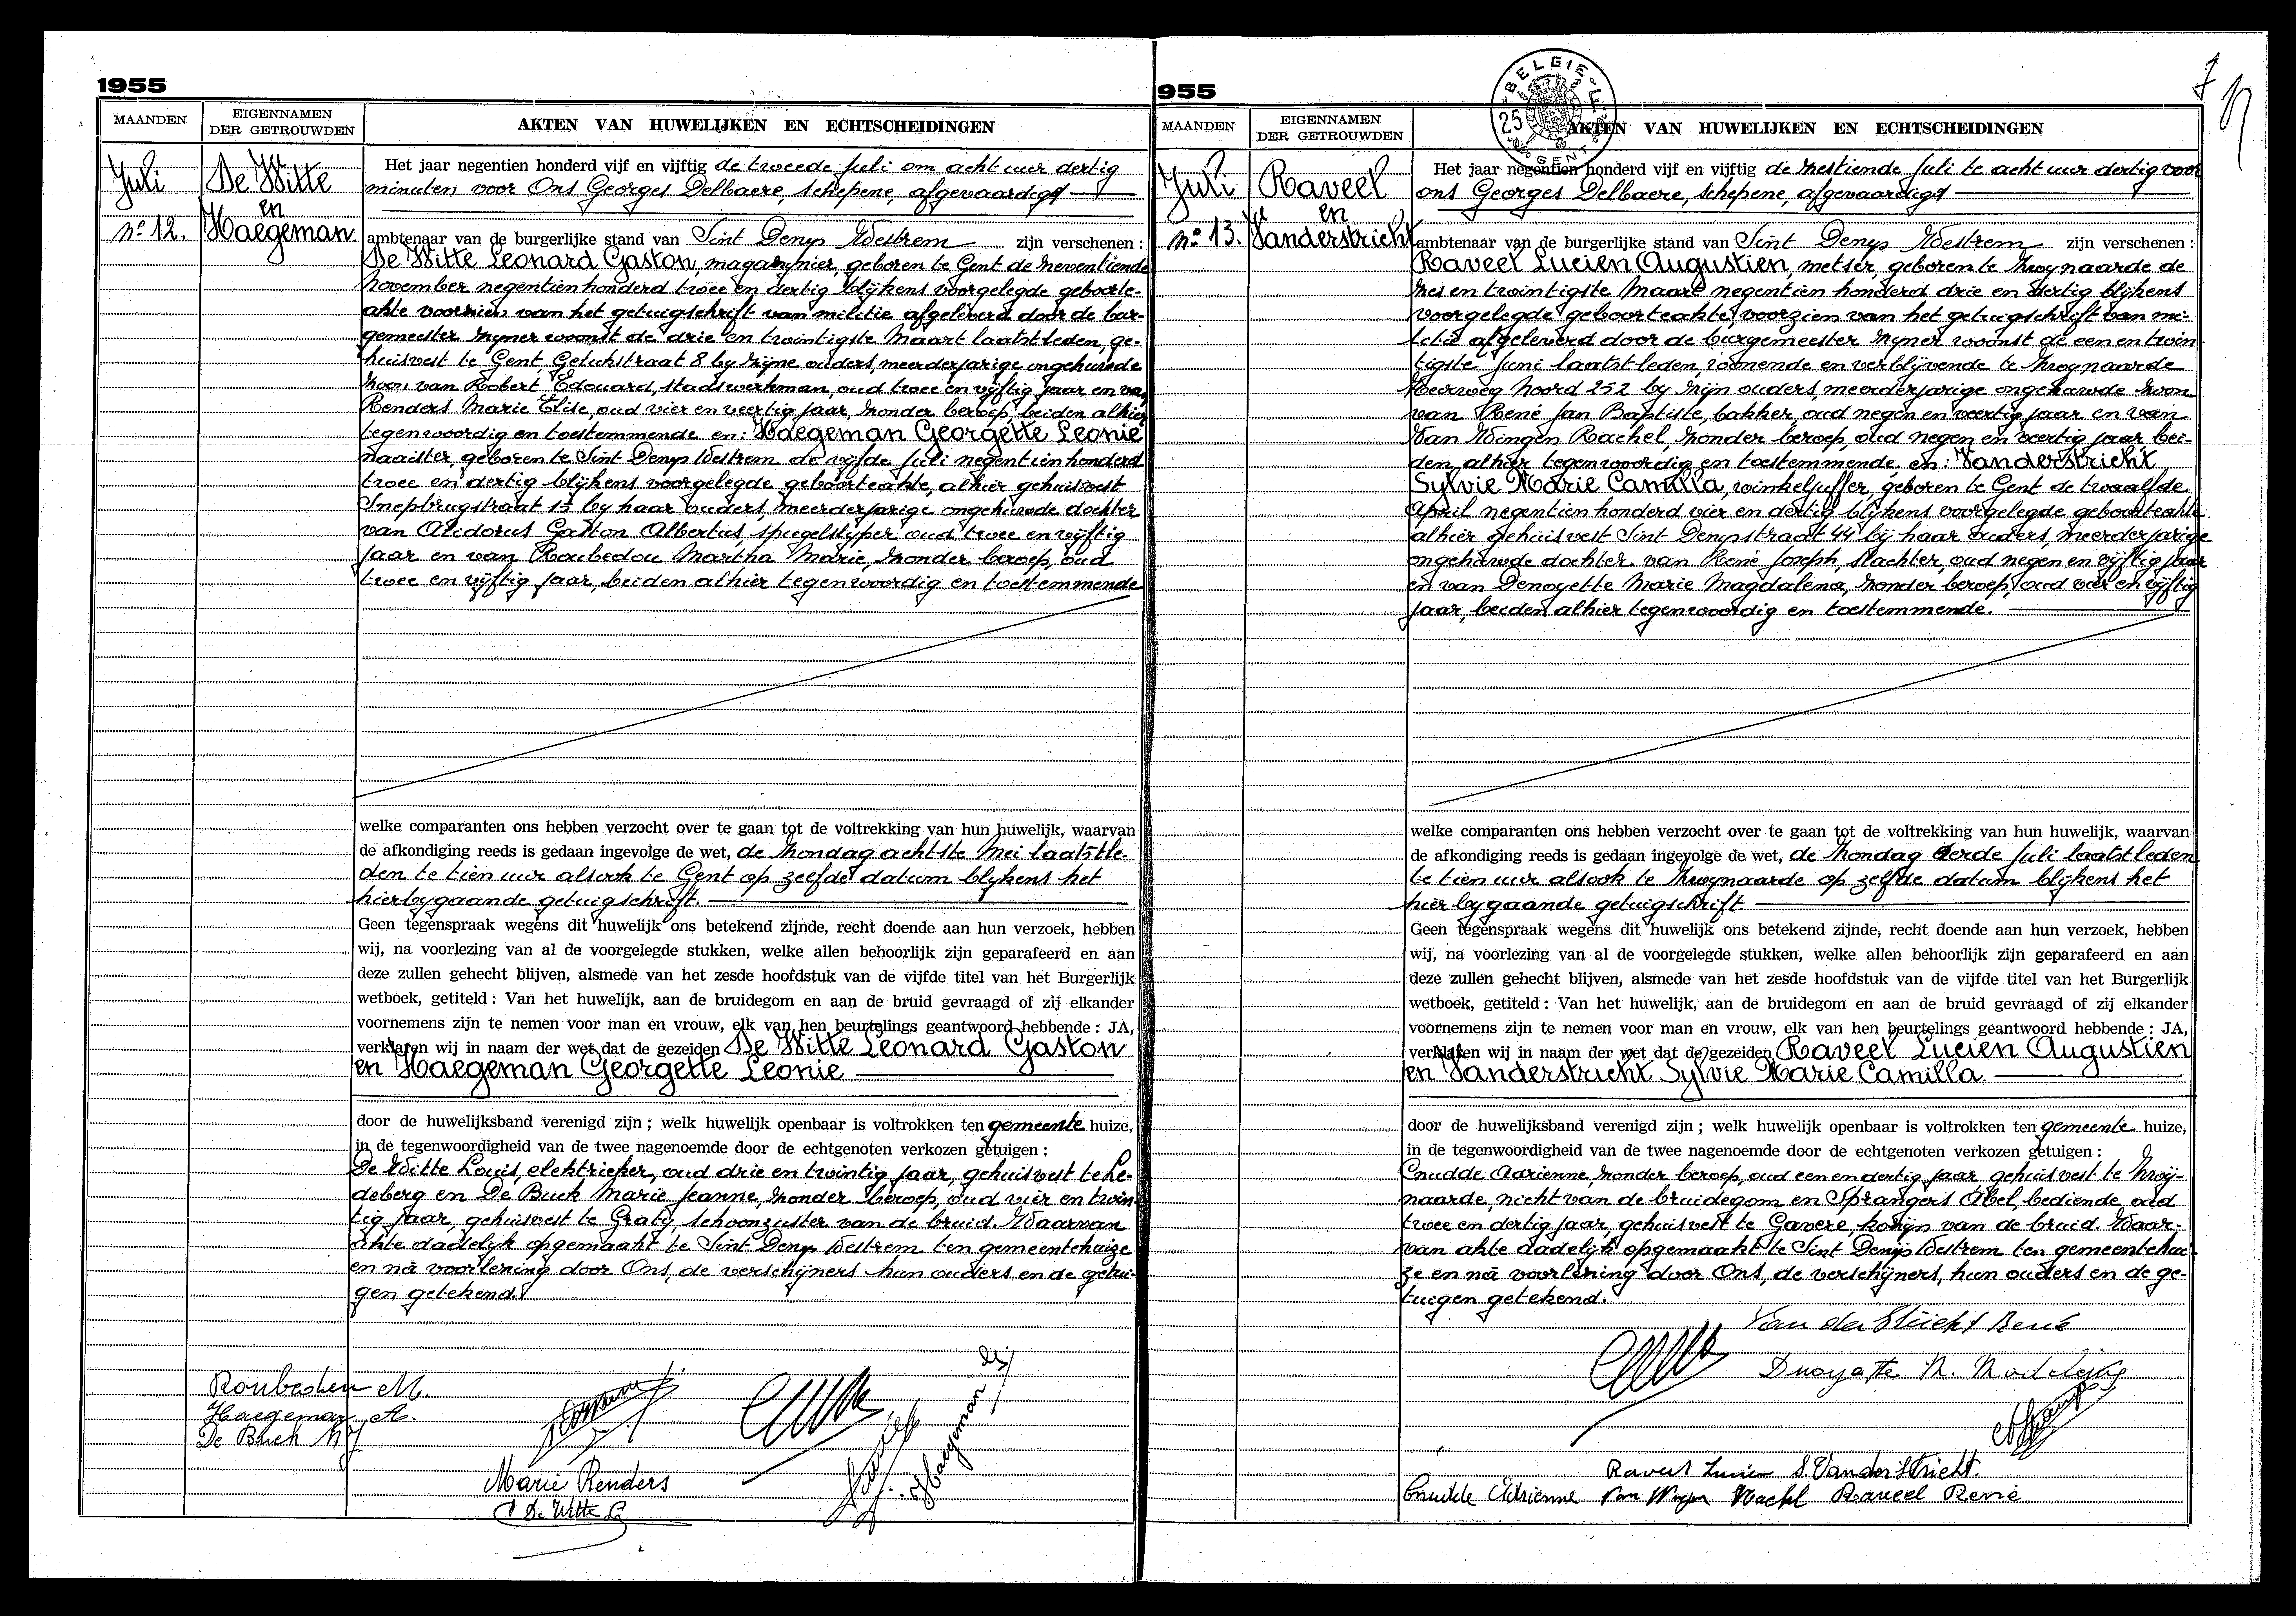 1955
MAANDEN
EIGENNAMEN
DER GETROUWDEN
AKTEN VAN HUWELIJKEN EN ECHTSCHEIDINGEN
Juli
De Witte
en
nº 12.
Haegeman
Het jaar negentien honderd vijf en vijftig de tweede Juli om acht uur dertig
minuten voor Ons Georges Delbaere, schepene, afgevaardigd
ambtenaar van de burgerlijke stand van Sint Denys Westrem zijn verschenen :
De Witte Leonard Gaston, magazynier, geboren te Gent de zeventiende
November negentienhonderd twee en dertig blijkens voorgelegde geboorte-
akte voorzien van het getuigschrift van militie afgeleverd door de bur-
gemeester zyner woonst de drie en twintigste Maart laatstleden, ge-
huisvest te Gent, Gelukstraat 8 by zyne ouders, meerderjarige ongehuwde
zoon van Robert Edouard, stadswerkman, oud twee en vyftig jaar en van
Renders Marie Elise, oud vier en veertig jaar, zonder beroep, beiden alhier
tegenwoordig en toestemmende en: Haegeman Georgette Leonie
naaister, geboren te Sint Denys Westrem de vijfde Juli negentienhonderd
twee en dertig blijkens voorgelegde geboorteakte, alhier gehuisvest
Snepbrugstraat 15 by haar ouders, meerderjarige ongehuwde dochter
van Alidorus Gaston Albertus spiegelslyper oud twee en vyftig
jaar en van Roubedou Martha Marie, zonder beroep, oud
twee en vijftig jaar, beiden alhier tegenwoordig en toestemmende
welke comparanten ons hebben verzocht over te gaan tot de voltrekking van hun huwelijk, waarvan
de afkondiging reeds is gedaan ingevolge de wet, de zondag achtste Mei laatstle-
den te tien uur alsook te Gent op zelfde datum blykens het
hierbygaande getuigschrift.
Geen tegenspraak wegens dit huwelijk ons betekend zijnde, recht doende aan hun verzoek, hebben
wij, na voorlezing van al de voorgelegde stukken, welke allen behoorlijk zijn geparafeerd en aan
deze zullen gehecht blijven, alsmede van het zesde hoofdstuk van de vijfde titel van het Burgerlijk
wetboek, getiteld : Van het huwelijk, aan de bruidegom en aan de bruid gevraagd of zij elkander
voornemens zijn te nemen voor man en vrouw, elk van hen beurtelings geantwoord hebbende : JA,
verklaren wij in naam der wet dat de gezeiden De Witte Leonard Gaston
en Haegeman Georgette Leonie
door de huwelijksband verenigd zijn ; welk huwelijk openbaar is voltrokken ten gemeente huize,
in de tegenwoordigheid van de twee nagenoemde door de echtgenoten verkozen getuigen :
De Witte Louis, elektrieker, oud drie en twintig jaar, gehuisvest te Le-
deberg en De Buck Marie Jeanne, zonder beroep, oud vier en twin-
tig jaar, gehuisvest te Graty, schoonzuster van de bruid. Waarvan
akte dadelyk opgemaakt te Sint Denys Westrem ten gemeentehuize
en nà voorlezing door Ons, de verschijners hun ouders en de getui-
gen getekend.
Roubedou M.
Haegeman A.
De Buck M J
Marie Renders
De Witte L
Haegeman
955
BELGIE
25
GENT
7
MAANDEN
EIGENNAMEN
DER GETROUWDEN
AKTEN VAN HUWELIJKEN EN ECHTSCHEIDINGEN
Juli
Raveel
en
nº 13.
Vanderstricht
Het jaar negentien honderd vijf en vijftig de zestiende Juli te acht uur dertig voor
ons Georges Delbaere, schepene, afgevaardigd
ambtenaar van de burgerlijke stand van Sint Denys Westrem zijn verschenen :
Raveel Lucien Augustien, metser, geboren te Zwynaarde de
zes en twintigste Maart negentien honderd drie en dertig blijkens
voorgelegde geboorteakte, voorzien van het getuigschrift van mi-
litie afgeleverd door de burgemeester zyner woonst de een en twin-
tigste Juni laatst leden, wonende en verblijvende te Zwynaarde
Heerweg Noord 252 by zijn ouders, meerderjarige ongehuwde zoon
van René Jan Baptiste, bakker, oud negen en veertig jaar en van
Van Wingen Rachel, zonder beroep, oud negen en veertig jaar bei-
den alhier tegenwoordig en toestemmende. en: Vanderstricht
Sylvie Marie Camilla, winkeljuffer, geboren te Gent de twaalfde
April negentien honderd vier en dertig blijkens voorgelegde geboorteakte
alhier gehuisvest Sint Denysstraat 44 bij haar ouders, meerderjarige
ongehuwde dochter van René Joseph, slachter, oud negen en vijftig jaar
en van Denoyette Marie Magdalena, zonder beroep, oud vier en vijftig
jaar, beiden alhier tegenwoordig en toestemmende.
welke comparanten ons hebben verzocht over te gaan tot de voltrekking van hun huwelijk, waarvan
de afkondiging reeds is gedaan ingevolge de wet, de zondag derde Juli laatst leden
te tien uur alsook te Zwynaarde op zelfde datum blijkens het
hierbygaande getuigschrift
Geen tegenspraak wegens dit huwelijk ons betekend zijnde, recht doende aan hun verzoek, hebben
wij, na voorlezing van al de voorgelegde stukken, welke allen behoorlijk zijn geparafeerd en aan
deze zullen gehecht blijven, alsmede van het zesde hoofdstuk van de vijfde titel van het Burgerlijk
wetboek, getiteld : Van het huwelijk, aan de bruidegom en aan de bruid gevraagd of zij elkander
voornemens zijn te nemen voor man en vrouw, elk van hen beurtelings geantwoord hebbende : JA,
verklaren wij in naam der wet dat de gezeiden Raveel Lucien Augustien
en Vanderstricht Sylvie Marie Camilla.
door de huwelijksband verenigd zijn ; welk huwelijk openbaar is voltrokken ten gemeente huize,
in de tegenwoordigheid van de twee nagenoemde door de echtgenoten verkozen getuigen :
Cnudde Adrienne, zonder beroep, oud een en dertig jaar gehuisvest te Zwij-
naarde, nicht van de bruidegom en Sprangers Abel, bediende, oud
twee en dertig jaar, gehuisvest te Gavere, kozijn van de bruid. Waar-
van akte dadelijk opgemaakt te Sint Denijs Westrem ten gemeentehui-
ze en nà voorlezing door Ons, de verschijners, hun ouders en de ge-
tuigen getekend.
Van der Stricht René
Raveel Lucien S. Vanderstricht.
Cnudde Adrienne Raveel René